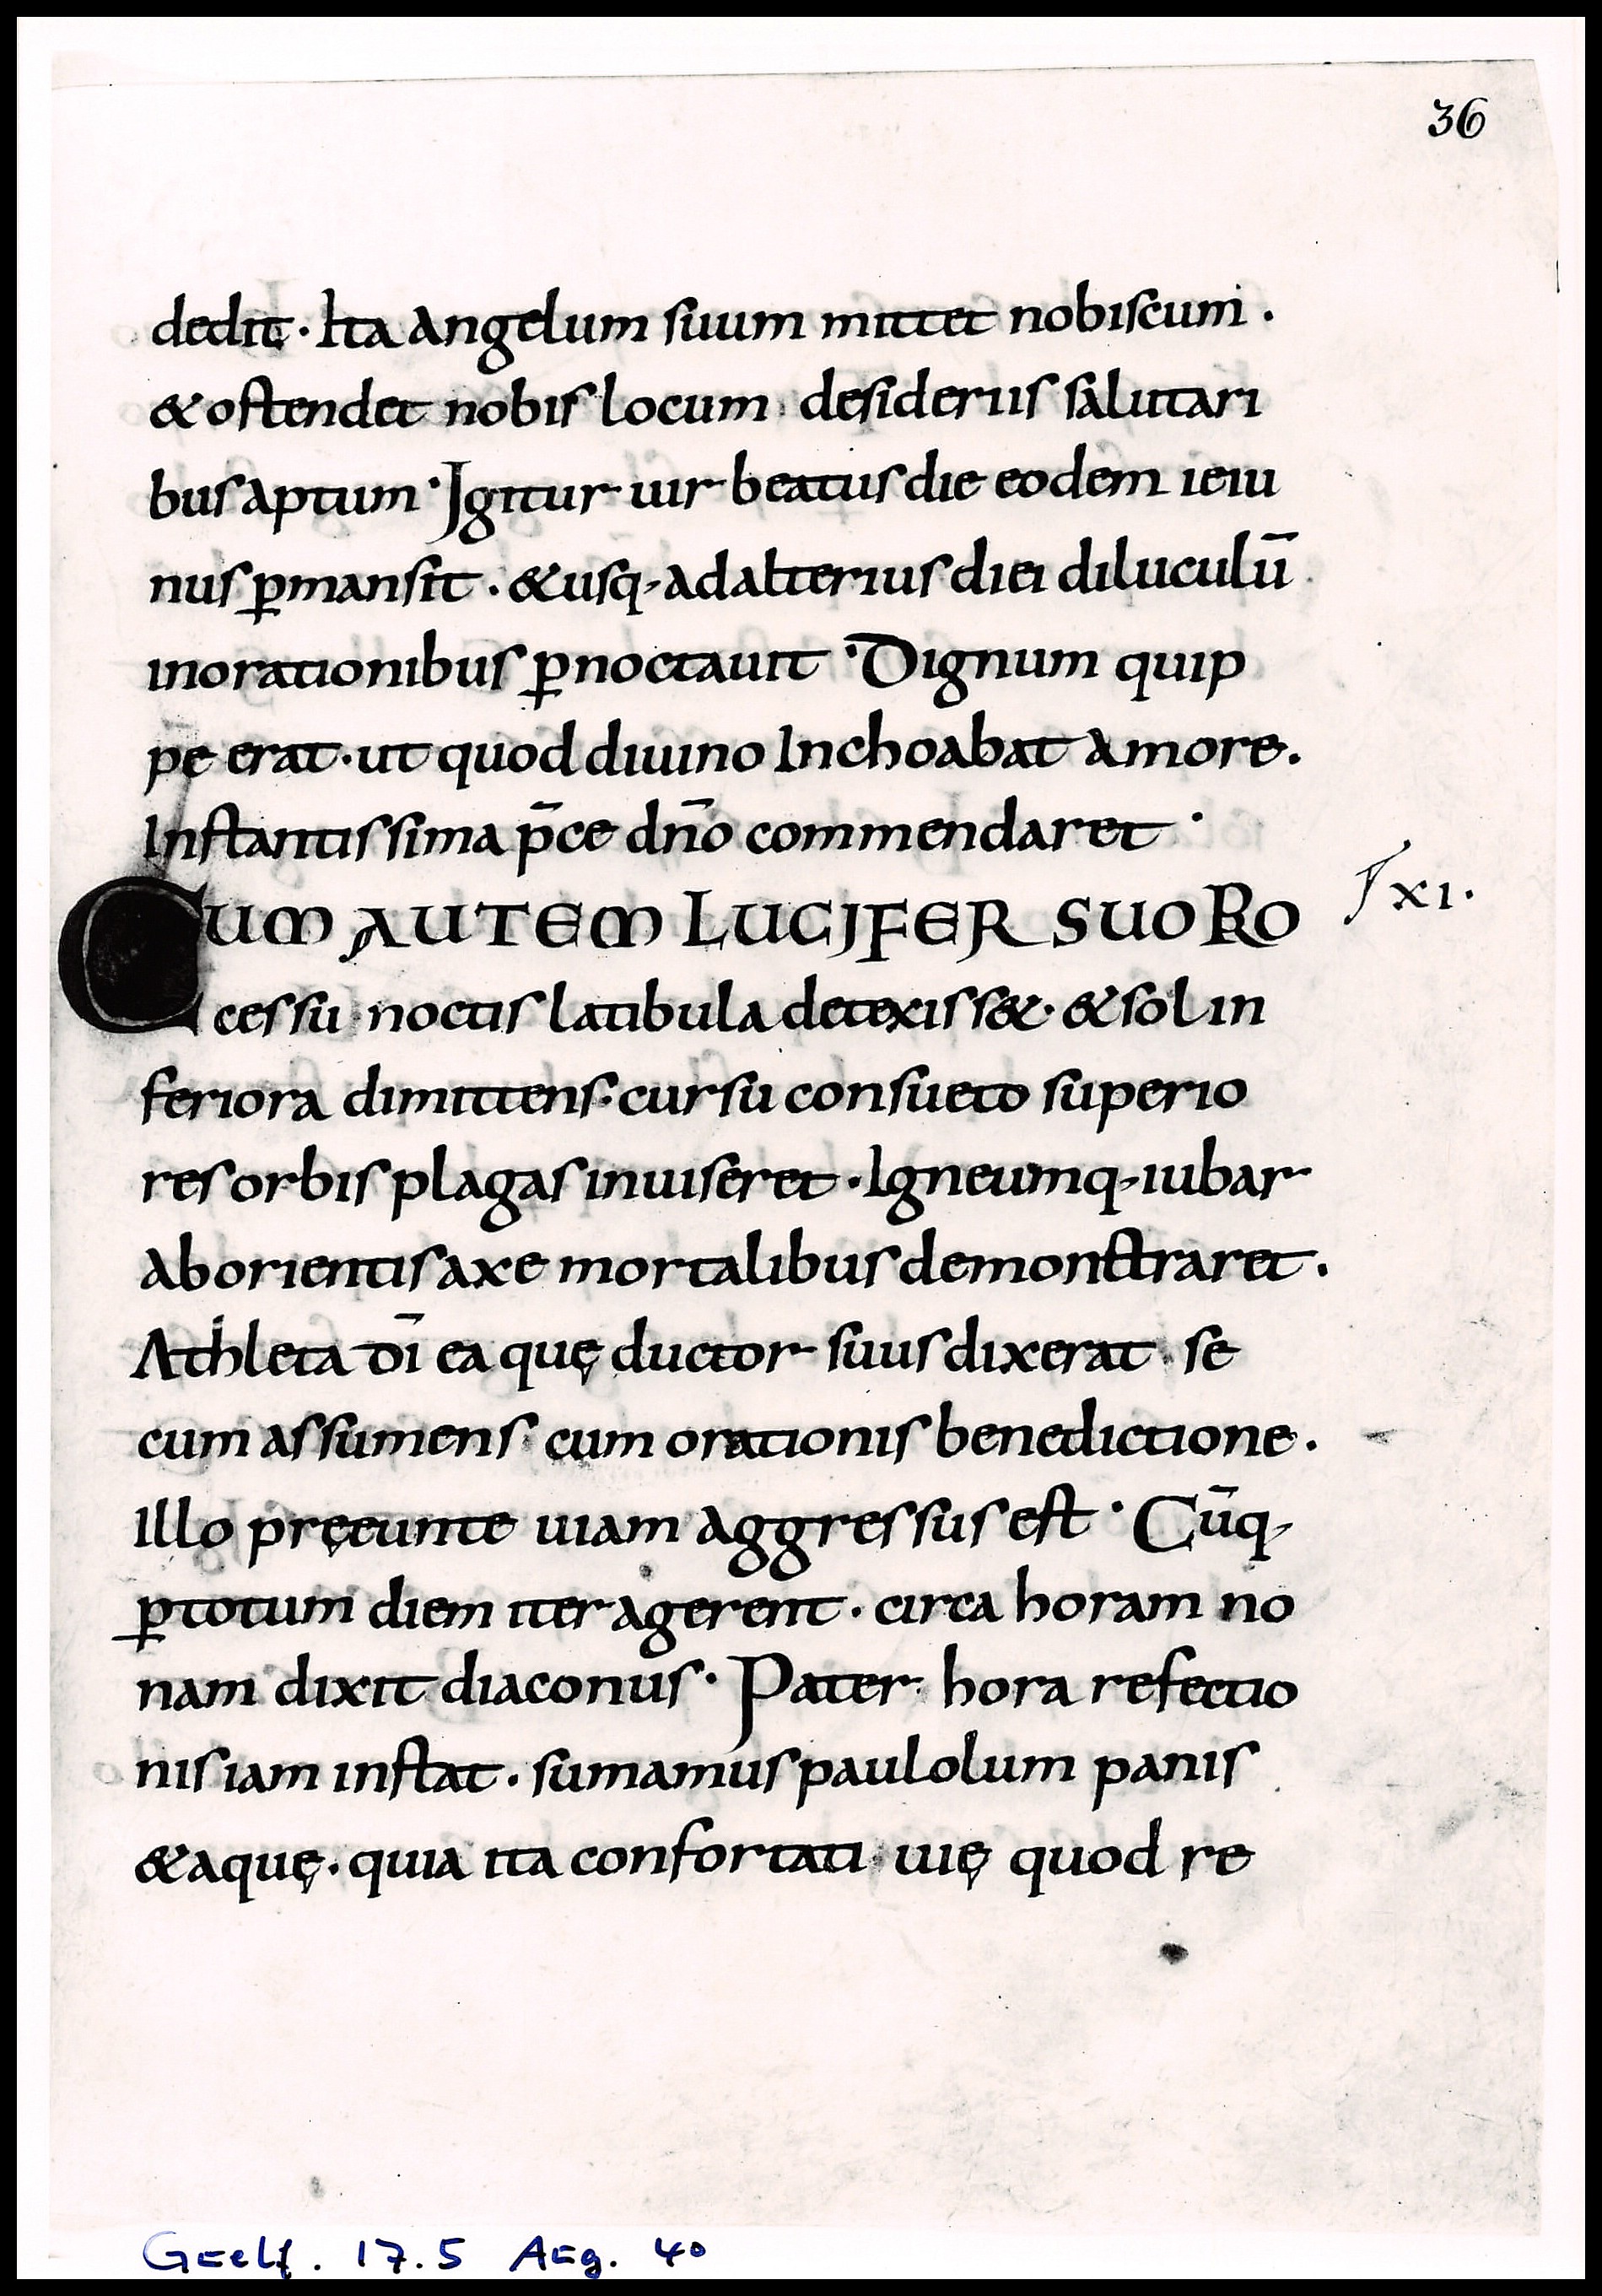 36
dedit · Ita angelum suum mittet nobiscum ·
& ostendet nobis locum desideriis salutari
bus aptum · Igitur uir beatus die eodem ieiu
nus ꝑmansit · & usq, ad alterius diei diluculū
in orationibus ꝑnoctauit · Dignum quip
pe erat · ut quod diuino Inchoabat amore ·
Instantissima p̄ce dn̄o commendaret ·
CUM AUTEM LUCIFER SUO RO
cessu noctis latibula detexiss& · & sol in
feriora dimittens · cursu consueto superio
res orbis plagas inuiseret · Igneumq, iubar
ab orientis axe mortalibus demonstraret ·
xi ·
Athleta dī ea quę ductor suus dixerat · se
cum assumens · cum orationis benedictione ·
Illo pręeunte uiam aggressus est · Cūq,
ꝑ totum diem iter agerent · circa horam no
nam dixit diaconus · Pater hora refectio
nis iam instat · sumamus paulolum panis
& aquę · quia ita confortati uię quod re
Guelf. 17.5 Aug. 4º